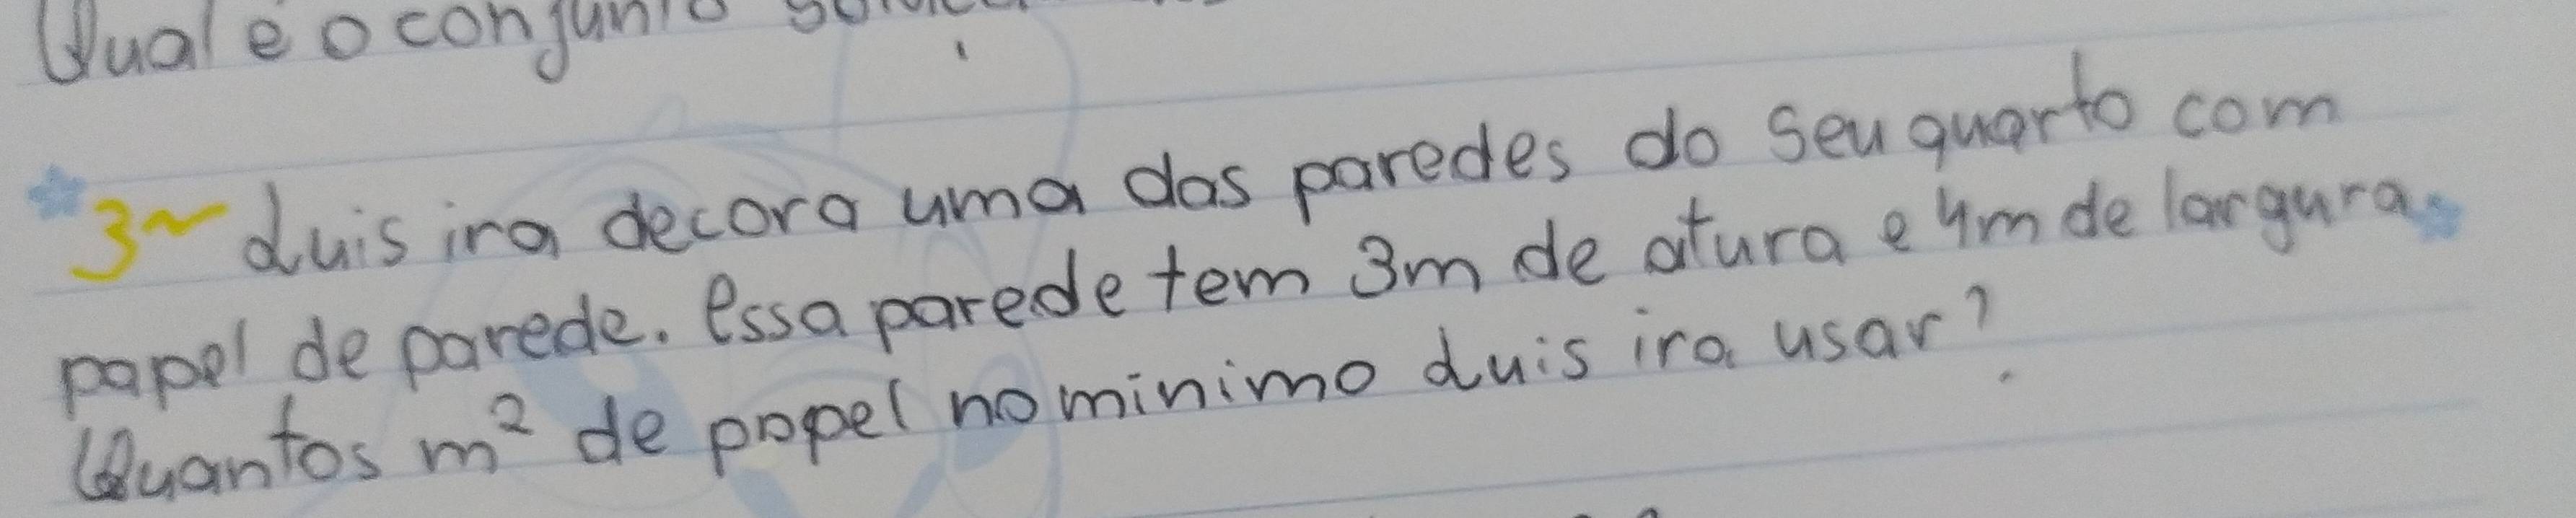 Qual é o conjunto
3~ Luis ira decora uma das paredes do seu quarto com
papel de parede. Essa parede tem 3m de atura e 4m de largura.
Quantos m² de papel no minimo Luis ira usar?